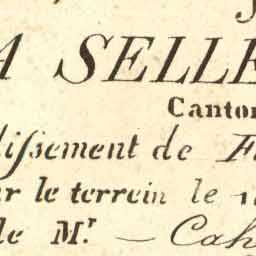 A SELLE
Canton
dissement de F
ur le terrein le
de Mr. — Cah